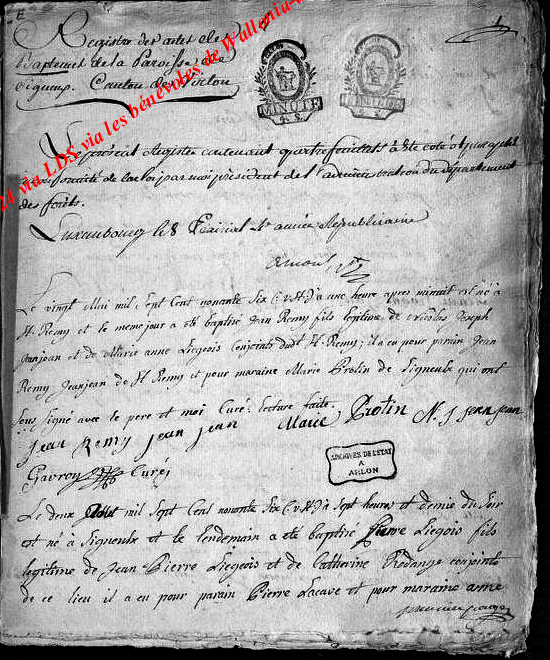 Registre des actes de
Baptemes de la Paroisse de
Signeux. Canton de Virton
MINUTE
24 via LDS via les bénévoles de Wallonia-
Le présent Registre contenant quatre feuillets a été coté et paraphé
de la loi par moi président de l'administration du département
des forêts.
Luxembourg le 8 Prairial 4e année Republicaine
Le vingt Mai mil, Sept Cent nonante Six (v.st) a une heure apres minuit est né à
St. Remy et le meme jour a été baptisé Jean Remy fils legitime de Nicolas Joseph
Jeanjean et de Marie anne Liegeois Conjoints dudt St. Remy; il a eu pour parain Jean
Remy Jeanjean de St Remy et pour maraine Marie Protin de Signeulx qui ont
Sous Signé avec le pere et moi Curé. lecture faite.
Jean Remy jean jean Marie Protin N. J jean jean
Gavroy Curé
ARCHIVES DE L'ETAT
A
ARLON
Le deux mil Sept Cent nonante Six (v.st) à Sept heures et demie du Soir
est né à Signeulx et le lendemain a été baptisé Pierre Liegois fils
legitime de Jean Pierre Liegeois et de Catherine Rodange conjoints
de ce lieu il a eu pour parain Pierre Lacave et pour maraine anne